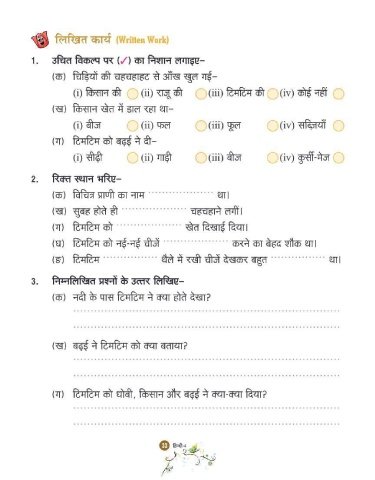 लिखित कार्य (Written Work)
1. उचित विकल्प पर (✓) का निशान लगाइए-
(क) चिड़ियों की चहचहाहट से आँख खुल गई-
(i) किसान की (ii) राजू की (iii) टिमटिम की (iv) कोई नहीं
(ख) किसान खेत में डाल रहा था-
(i) बीज (ii) फल (iii) फूल (iv) सब्ज़ियाँ
(ग) टिमटिम को बढ़ई ने दी-
(i) सीढ़ी (ii) गाड़ी (iii) बीज (iv) कुर्सी-मेज
2. रिक्त स्थान भरिए-
(क) विचित्र प्राणी का नाम .................... था।
(ख) सुबह होते ही .................... चहचहाने लगीं।
(ग) टिमटिम को .................... खेत दिखाई दिया।
(घ) टिमटिम को नई-नई चीजें .................... करने का बेहद शौक था।
(ङ) टिमटिम .................... थैले में रखी चीजें देखकर बहुत .................... था।
3. निम्नलिखित प्रश्नों के उत्तर लिखिए-
(क) नदी के पास टिमटिम ने क्या होते देखा?
(ख) बढ़ई ने टिमटिम को क्या बताया?
(ग) टिमटिम को धोबी, किसान और बढ़ई ने क्या-क्या दिया?